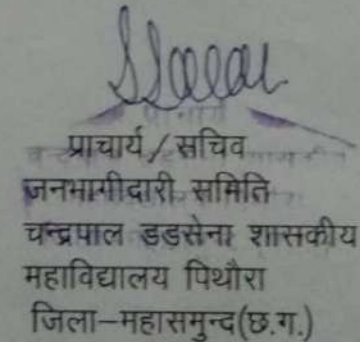 प्राचार्य/सचिव
जनभागीदारी समिति
चन्द्रपाल डडसेना शासकीय
महाविद्यालय पिथौरा
जिला-महासमुन्द(छ.ग.)